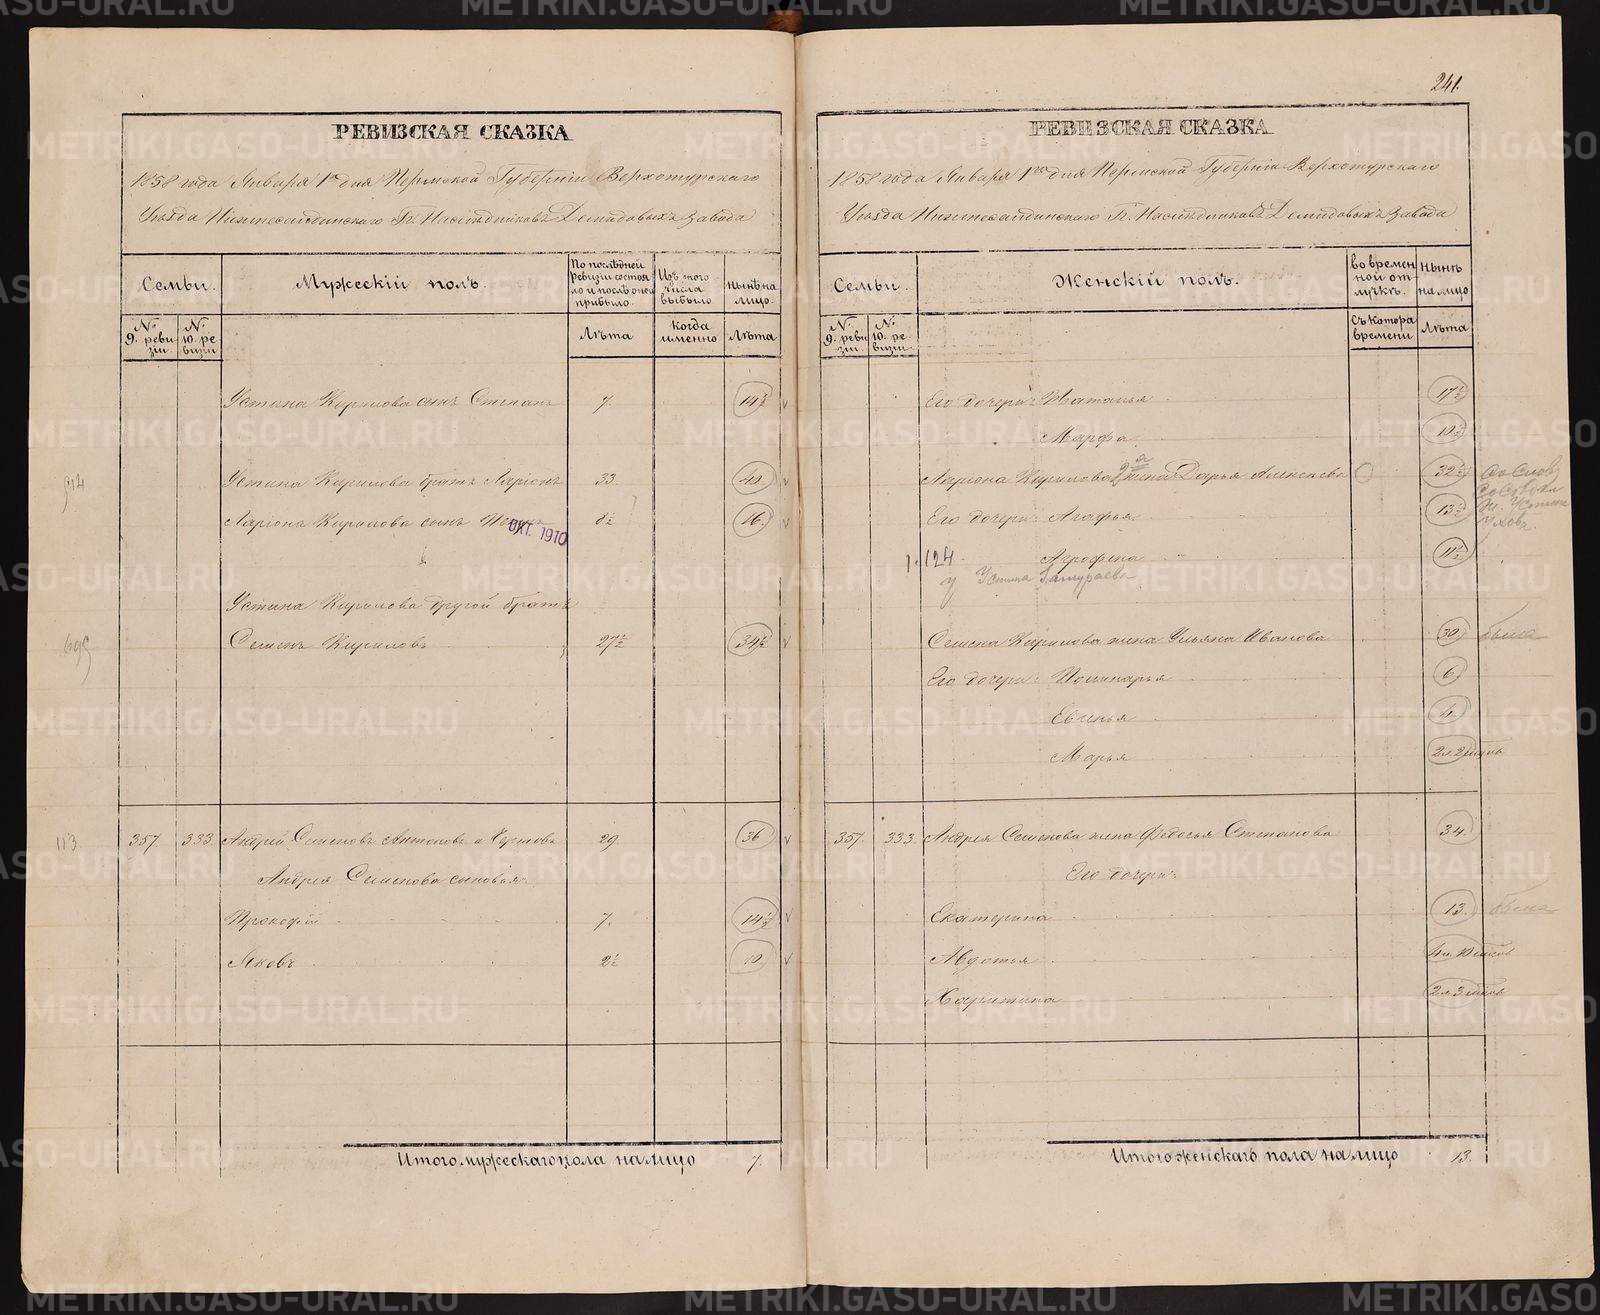 241.
РЕВИЗСКАЯ СКАЗКА
1858 года Января 1го дня Пермской Губернiи Верхотурскаго
Уѣзда Нижнесалдинскаго Гг. Наслѣдниковъ Демидовыхъ Завода
Семьи. Мужескiй полъ. По послѣдней ревизiи состояло и послѣ оной прибыло. Изъ того числа выбыло Нынѣ на лицо.
№ 9. ревизiи № 10. ревизiи Лѣта когда именно Лѣта
Устина Кирилова сынъ Степанъ 7. 14½
Устина Кирилова братъ Ларiонъ 33. 40
Ларiона Кирилова сынъ 8½ 16.
ОКТ. 1910
Устина Кирилова другой братъ
695
Семенъ Кириловъ 27½ 34½
113
357. 333. Андрей Семеновъ Антоновъ и 29. 36
Андрея Семенова сыновья:
Прокофiй 7. 14½
Яковъ 2½ 10
Итого мужескаго пола на лицо 7.
РЕВИЗСКАЯ СКАЗКА
1858 года Января 1го дня Пермской Губернiи Верхотурскаго
Уѣзда Нижнесалдинскаго Гг. Наслѣдниковъ Демидовыхъ Завода
Семьи. Женскiй полъ. во временной отлучкѣ. Нынѣ на лицо
№ 9. ревизiи № 10. ревизiи Съ котора времени Лѣта
Его дочери: Наталья 17½
Марфа 10½
Ларiона Кирилова 2я жена Дарья Алексеева 32½
Его дочери: Агафья 13½
1.124. Агрофена 11½
у Устина
Семена Кирилова жена Ульяна Иванова 30
Его дочери: Полинарья 6
Евгенья 4.
Марья 2л. 2 мѣсяц
357. 333. Андрея Семенова жена Федосья Степанова 34.
Его дочери:
Екатерина 13.
Авдотья 4л. 10 мѣсяц
Харитина 2л. 3 мѣсяц
Итого женскаго пола на лицо 13.
METRIKI.GASO-URAL.RU